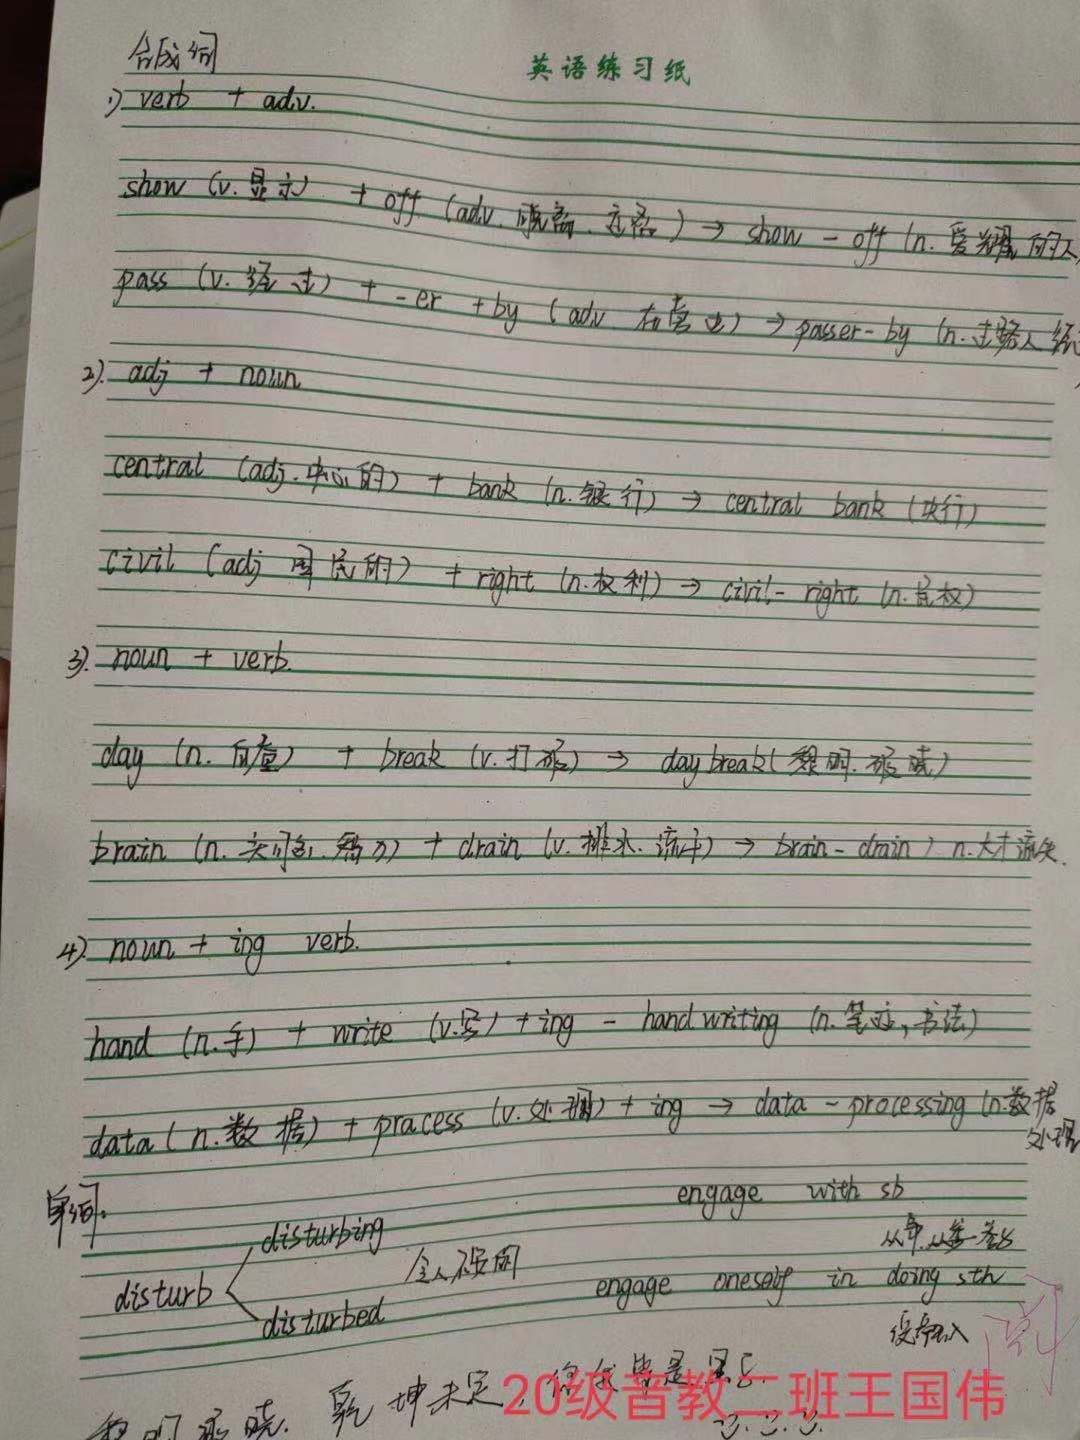 合成词
英语练习纸
1) verb + adv.
show (v.显示) + off (adv. 脱离. 远离) → show - off (n. 爱耀 的人
pass (v. 经过) + - er + by (adv 在旁边) → passer- by (n. 过路人 经
2). adj + noun
central (adj. 中心的) + bank (n.银行) → central bank (央行)
civil (adj 国民的) + right (n.权利) → civil- right (n.民权)
3). noun + verb.
day (n. 白昼) + break (v.打破) → daybreak (黎明.破晓)
brain (n. 头 脑力) + drain (v.排水. ) → brain-drain) n.人才流失.
4). noun + ing verb.
hand (n.手) + write (v.写) + ing - handwriting (n.笔迹,书法)
data ( n.数据) + pracess (v.处理) + ing → data - processing (n.数据
处理
单词.
engage with sb
disturbing
从事.
disturb 令人不安的
engage oneself in doing sth
disturbed
阅
黎明破晓. 乾坤未定 你我皆是黑马.
20级音教二班王国伟